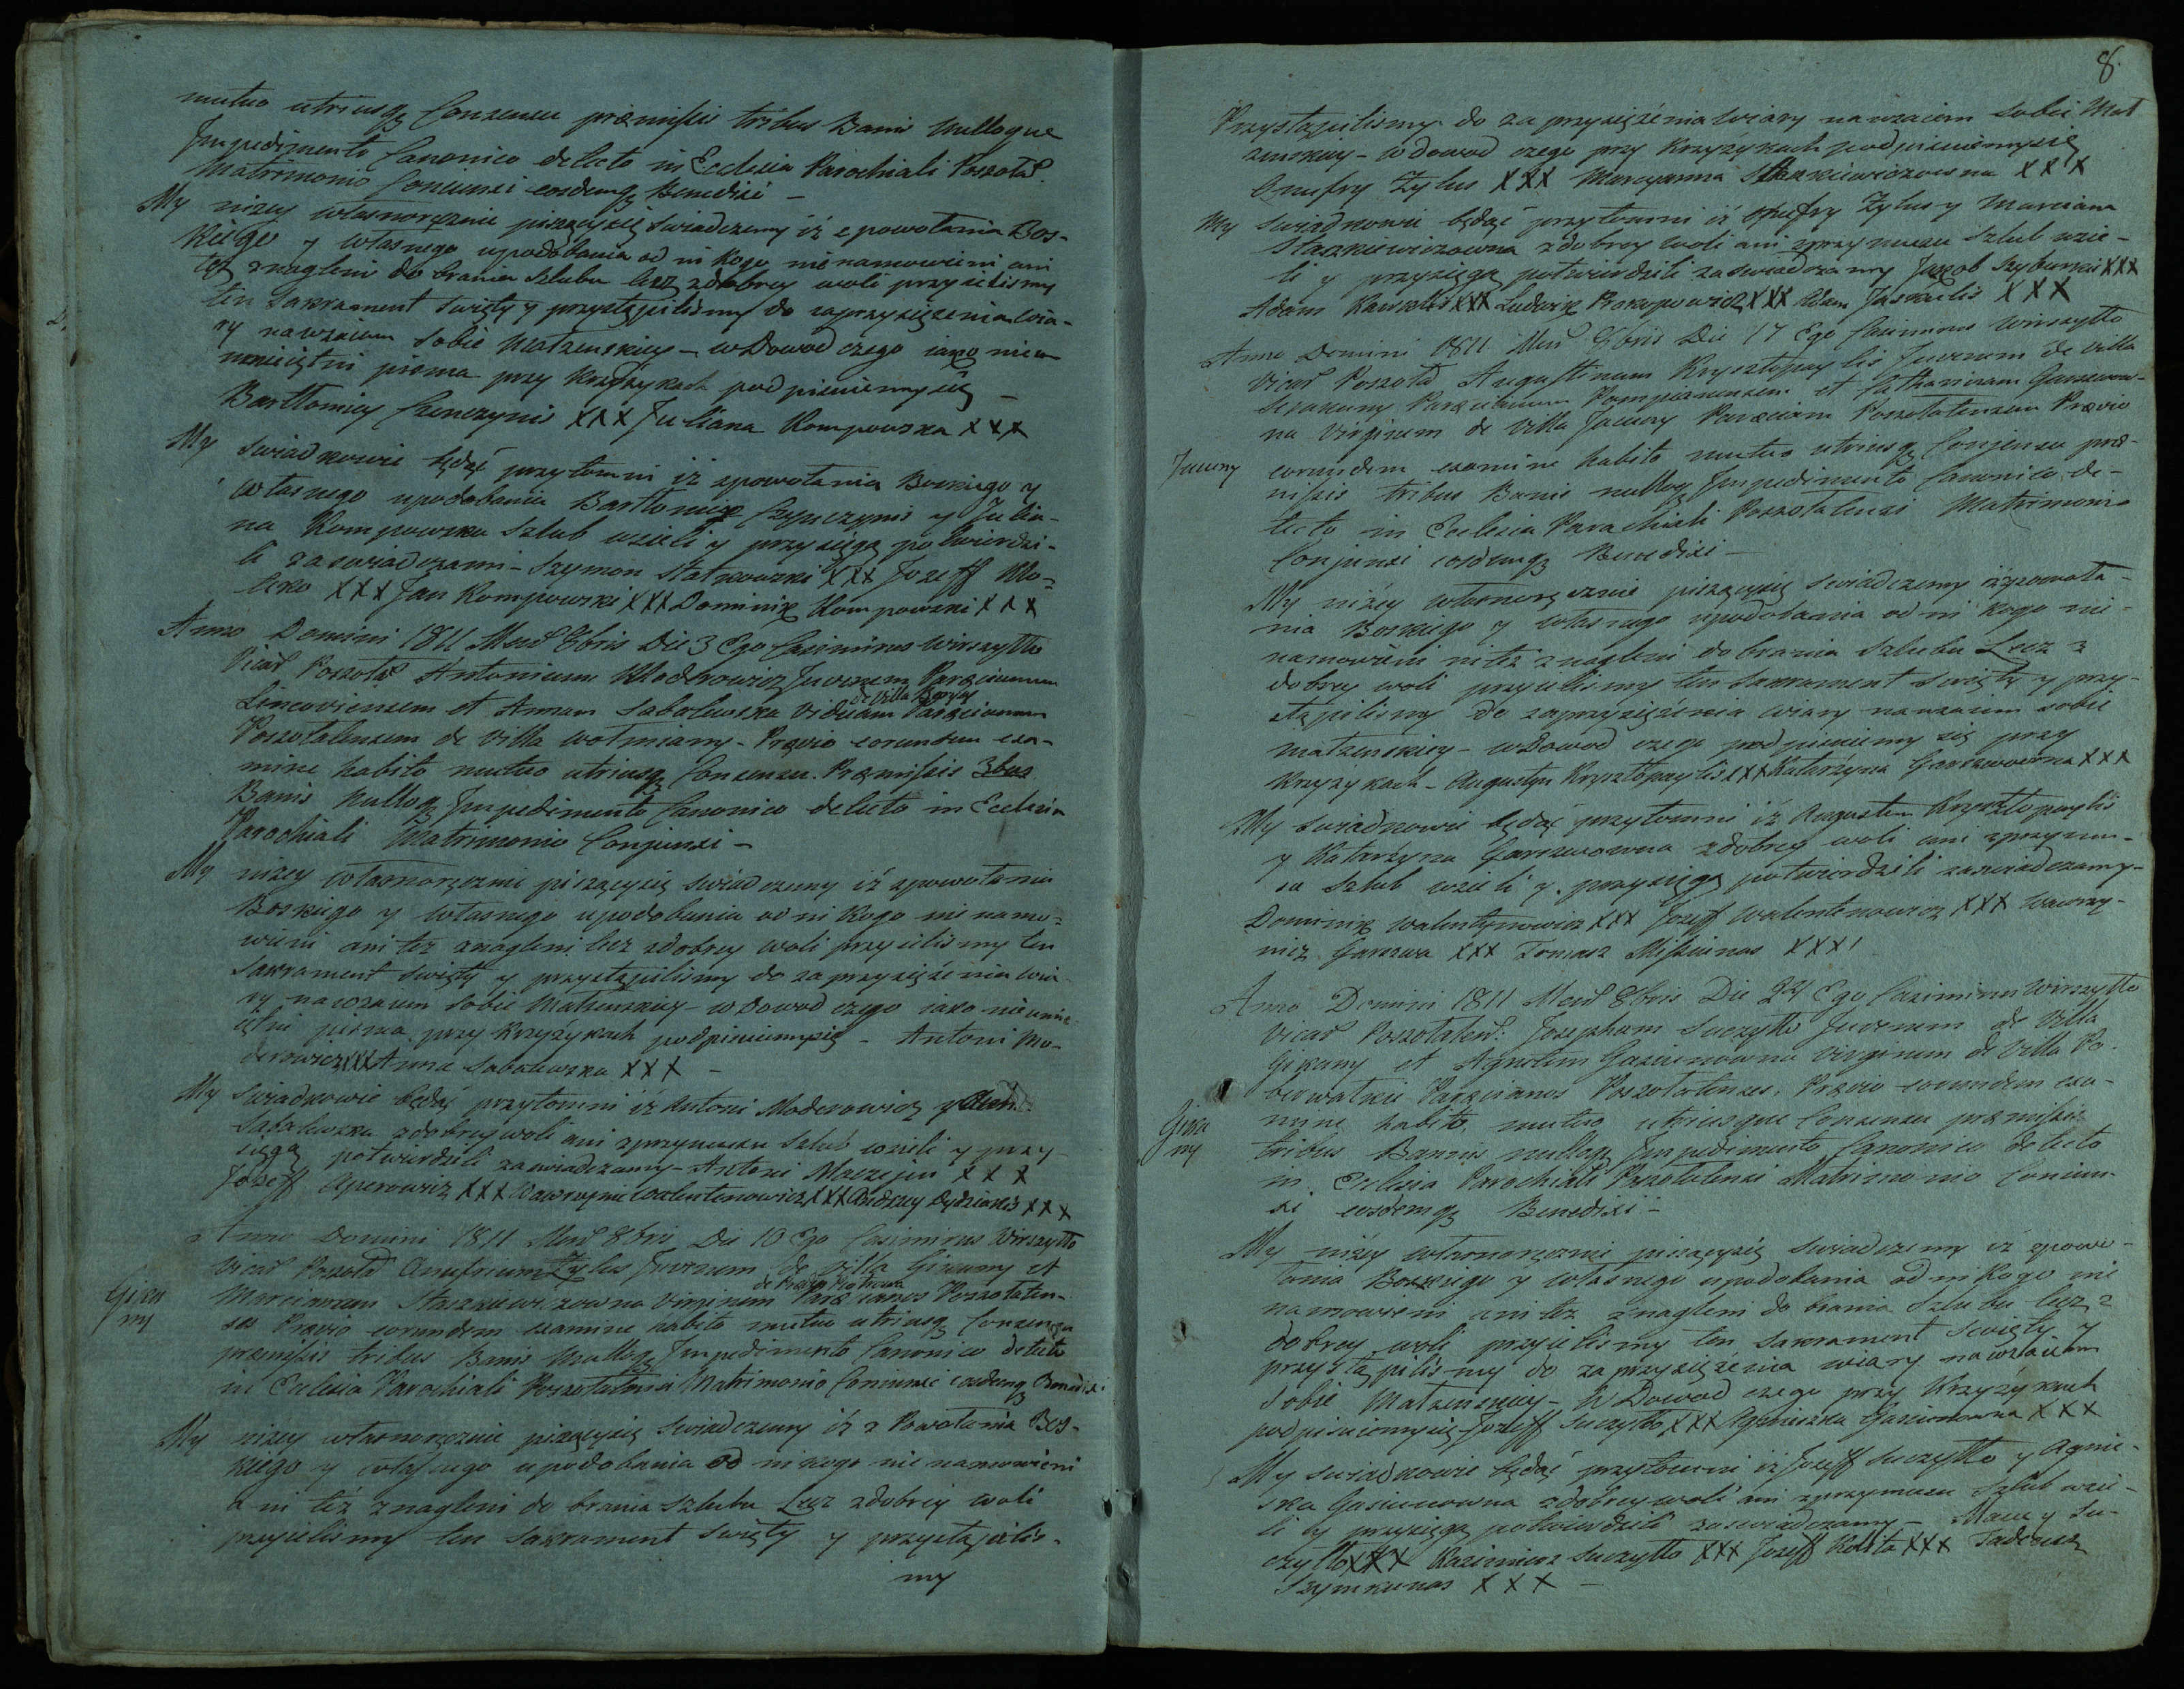 mutuo utriusq Consensu præmissis tribus Banis Nulloque
Impedimento Canonico detecto in Ecclesia Parochiali Poszołat
Matrimonio Coniunxi eosdemq Benedixi –
My niżey własnoręcznie piszącysię swiadczemy iż z powołania Bos-
kiego y własnego upodobania od ni kogo nie namowieni ani
też znagleni do brania szlubu lecz zdobrey woli przyielismy
ten sakrament swięty y przystąpilismy do zaprzysiężenia wia-
ry nawzaiem sobie Małzenskiey – w Dowod czego iako nieu-
mieiętni pisma przy krzyżykach podpisuiemysię –
Bartłomiey Czenczynis XXX Juliana Kompowska XXX
My swiadkowie będąć przytomni iż zpowołania Boskiego y
własnego upodobania Bartłomiey Czynczynis y Julia-
na Kompowska szlub wzieli y przysięgą potwierdzi-
li zaswiadczamy – Szymon Statkowski XXX Jozeff
XXX Jan Kompowski XXX Dominik Kompowski XXX
Anno Domini 1811 Mens 8bris Die 3 Ego Casimirus Wirszyłło
Vicar Poszołat Antonium Moderowicz Juvenem Paræcianum
de Villa
Lincoviensem et Annam Sabalewska Viduam Paræcianam
Poszołatensem de Villa Wołmiany – Prævio eorundem exa-
mine habito mutuo utriusq Consensu Præmissis 3bus
Banis Nulloq Impedimento Canonico detecto in Ecclesia
Parochiali Matrimonio Conjunxi –
My niżey własnoręcznie piszącysię swiadczemy iż zpowołania
Boskiego y własnego upodobania od ni kogo nie namo-
wieni ani też znagleni lecz zdobrey woli przyielismy ten
sakrament swięty y przystąpilismy do zaprzysiężenia wia-
ry nawzaiem sobie Małzenskiey – w Dowod czego iako nieumie-
iętni pisma przy krzyżykach podpisuiemysię – Antoni Mo-
derowicz XXX Anna Sabalewska XXX –
My swiadkowie będąć przytomni iż Antoni Moderowicz y Anna
Sabalewska zdobrey woli ani zprzymusu szlub wzieli y przy-
sięgą potwierdzili zaswiadczamy – Antoni Maczejun XXX
Jozeff Aperowicz XXX Wawrzyniec Walentenowicz XXX Andrzey XXX
Anno Domini 1811 Mens 8bris Die 10 Ego Casimirus Wirszyłło
Vicar Poszołat Onufrium Zylus Juvenem de Villa Gikuny et
de
Giku
ny
Marciannam Staszkiewiczowna Virginem Paræcianos Poszołaten-
ses Prævio eorundem examine habito mutuo utriusq Consensu
præmissis tribus Banis Nulloq Impedimento Canonico detecto
in Ecclesia Parochiali Poszołatensi Matrimonio Coniunxi eosdemq Benedixi
My niżey własnoręcznie piszącysię swiadczemy iż z Powołania Bos-
kiego y własnego upodobania od nikogo nie namowieni
ani też znagleni do brania szlubu Lecz zdobrey woli
przyielismy ten sakrament swięty y przystąpilis-
my
8.
Przystąpilismy do zaprzysiężenia wiary nawzaiem sobie Mał
zenskiey – w dowod czego przy krzyżykach podpisuiemysię
Onufry Zylus XXX Marcyanna Staszkiewiczowna XXX
My swiadkowie będąć przytomni iż Onufry Zylus y Marciana
Staszkiewiczowna zdobrey woli ani zprzymusu szlub wzie-
li y przysięgą potwierdzili zaswiadczamy Jakob Szyburski XXX
Adam XXX Ludwik Prokopowicz XXX Adam Jaskaelis XXX
Anno Domini 1811 Mens 8bris Die 17 Ego Casimirus Wirszyłło
Vicar Poszołat Augustinum Krysztopaylis Juvenem de Villa
Paræcianum Pompianensem et Catharinam Garszwow-
na Virginem de Villa Juciuny Paræciam Poszołatensem Prævio
Juciuny
eorundem examine habito mutuo utriusq Consensu præ-
missis tribus Banis nulloq Impedimento Canonico de-
tecto in Ecclesia Parachiali Poszołatensi Matrimonio
Conjunxi eosdemq Benedixi –
My niżey własnoręcznie piszącysię swiadczemy iż zpowoła-
nia Boskiego y własnego upodobania od ni kogo nie-
namowieni ni też znagleni do brania szlubu Lecz z
dobrey woli przyielismy ten sakrament swięty y przy-
stąpilismy do zaprzysiężenia wiary nawzaiem sobie
małzenskiey – w Dowod czego podpisuiemy się przy
krzyzykach – Augustyn Krysztopaylis XXX Katarzyna Garszwowna XXX
My swiadkowie będąć przytomni iż Augustyn Krysztopaylis
y Katarzyna Garszwowna zdobrey woli ani zprzymu-
su szlub wzieli y przysięgą potwierdzili zaswiadczamy –
Dominik Walentynowicz XXX Jozeff Walentenowicz XXX Wawrzy-
niez Garszwa XXX Tomasz Misiunas XXX
Anno Domini 1811 Mens 8bris Die 24 Ego Casimirus Wirszyłło
Vicar Poszołatens: Josephum Suczyłło Juvenem de Villa
Gikuny et Agnetem Gasiunowna Virginem de Villa Po-
Paræcianos Poszołatenses. Prævio eorundem exa-
Giku
ny
mine habito, mutuo utriusque Consensu præmissis
tribus Bannis nulloq Impedimento Canonico detecto
in Eclesia Parochiali Poszołatensi Matrimonio Coniun-
xi eosdemq Benedixi –
My niżey własnoręcznie piszącysię swiadczemy iż zpowo-
łania Boskiego y własnego upodobania od nikogo nie
namowieni ani też znagleni do brania szlubu lecz z
dobrey woli przyielismy ten sakrament swięty y
przystąpilismy do zaprzysiężenia wiary nawzaiem
sobie Małzenskiey – W Dowod czego przy Krzyżykach
podpisuiemysię Jozeff Suczyłło XXX Agnieszka Gasiunowna XXX
My swiadkowie będąć przytomni iż Jozeff Suczyłło y Agnie-
szka Gasiunowna zdobrey woli ani zprzymusu szlub wzie-
li y przysięgą potwierdzili zaswiadczamy – Maciey Su-
czyłło XXX Kazimierz Suczyłło XXX Jozeff XXX Tadeusz
Szymkunas XXX –